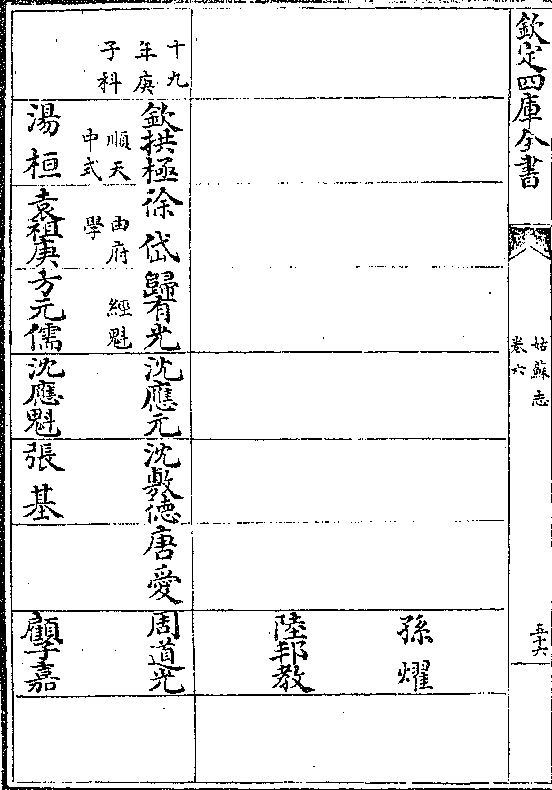 欽定四庫全書
姑蘇志
卷六
五十六
孫燿
陸邦教
十九
年庚
子科
欽拱極徐岱歸有光沈應元沈敷德唐愛周道光
順天
中式
由府
學
經魁
湯桓袁祖庚方元儒沈應魁張基顧子嘉